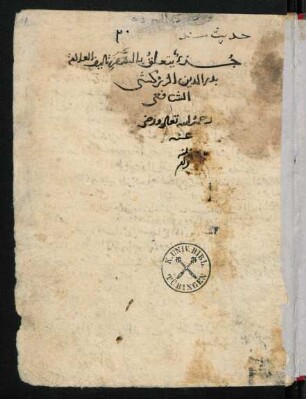 حديث سند ٢٠
جزء يتعلق بالشعر تاليف العلامة
بدر الدين الزركشي
الشافعي
رحمه الله تعالى ورضي
عنه
K. UNIV. BIBL.
TÜBINGEN